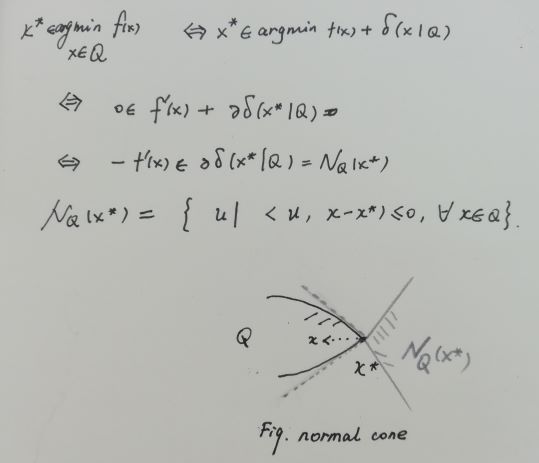 x* ∈ argmin f(x) ⇔ x* ∈ argmin f(x) + δ(x|Q)
x∈Q
⇔ 0 ∈ f'(x) + ∂δ(x*|Q)
⇔ - f'(x) ∈ ∂δ(x*|Q) = N_Q(x*)
N_Q(x*) = { u | < u, x-x*) ≤0, ∀ x∈Q}.
Q
x
x*
N_Q(x*)
Fig. normal cone